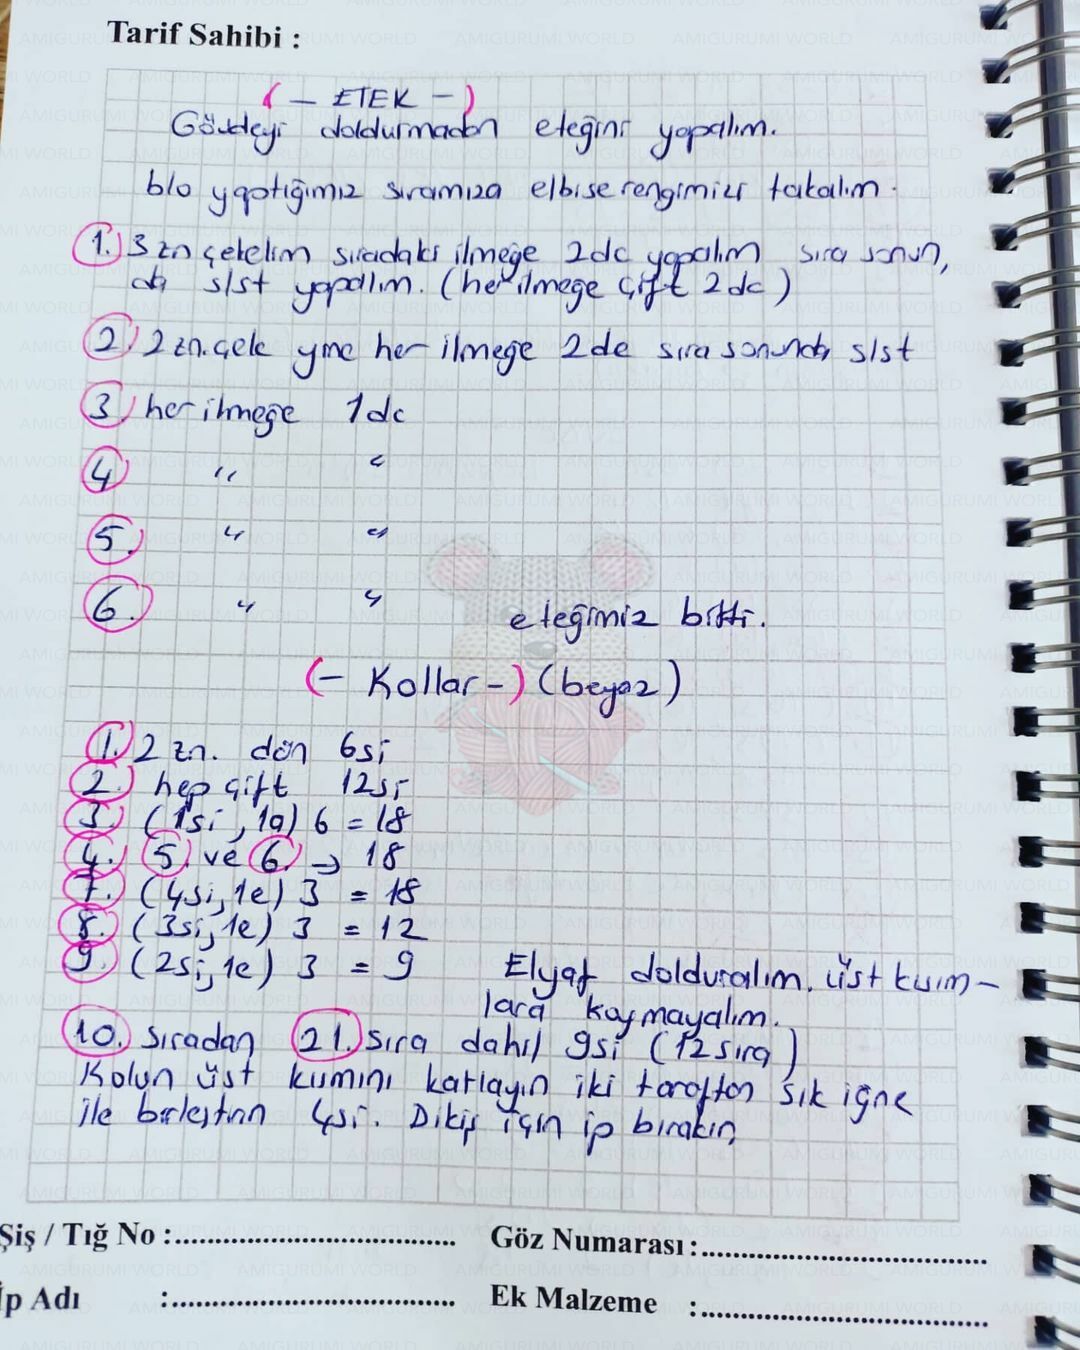 Tarif Sahibi :
(- ETEK -)
Gövdeyi doldurmadan eteğini yapalım.
blo yaptığımız sıramıza elbise rengimizi takalım.
1. 3 zn çekelim sıradaki ilmeğe 2dc yapalım sıra sonun,
da slst yapalım. (her ilmeğe çift 2dc)
2. 2 zn. çek yine her ilmeğe 2dc sıra sonunda slst
3. her ilmeğe 1dc
4. " "
5. " "
6. " " eteğimiz bitti.
(- Kollar -) (beyaz)
1. 2 zn. dön 6si
2. hep çift 12si
3. (1si, 1a) 6 = 18
4. 5. ve 6. → 18
7. (4si, 1e) 3 = 18
8. (3si, 1e) 3 = 12
9. (2si, 1e) 3 = 9 Elyaf dolduralım. üst kısım-
lara koymayalım.
10. sıradan 21. sıra dahil 9si (12 sıra)
Kolun üst kısmını katlayın iki taraftan sık iğne
ile birleştirin 4si. Dikiş için ip bırakın
Şiş / Tığ No :
Göz Numarası :
İp Adı :
Ek Malzeme :
AMIGURUMI WORLD